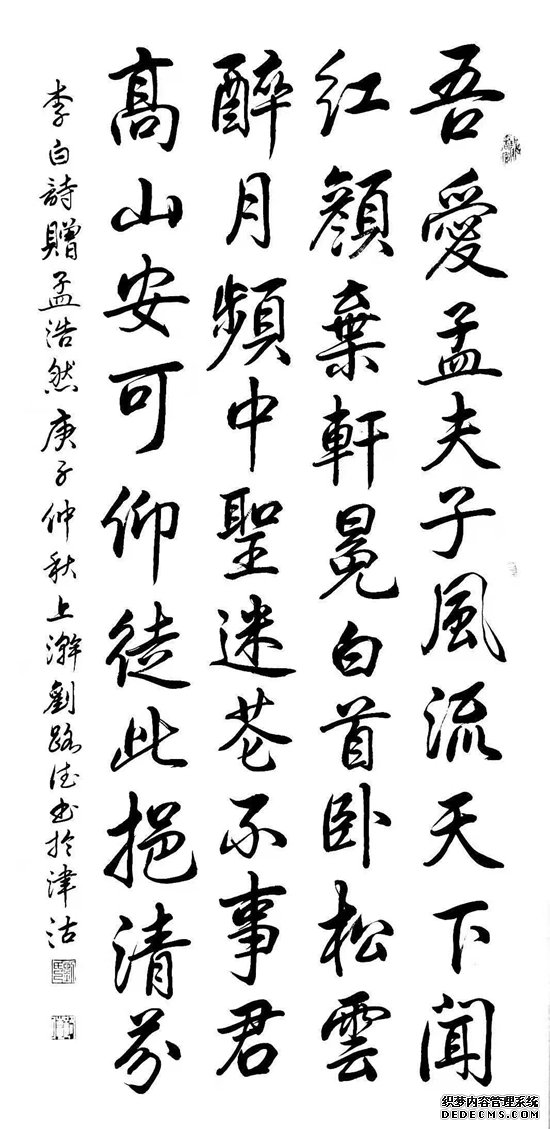 吾愛孟夫子風流天下聞
紅顔棄軒冕白首卧松雲
醉月頻中聖迷花不事君
高山安可仰徒此挹清芬
李白詩贈孟浩然庚子仲秋上澣劉路德书於津沽
织梦内容管理系统
DEDECMS.COM